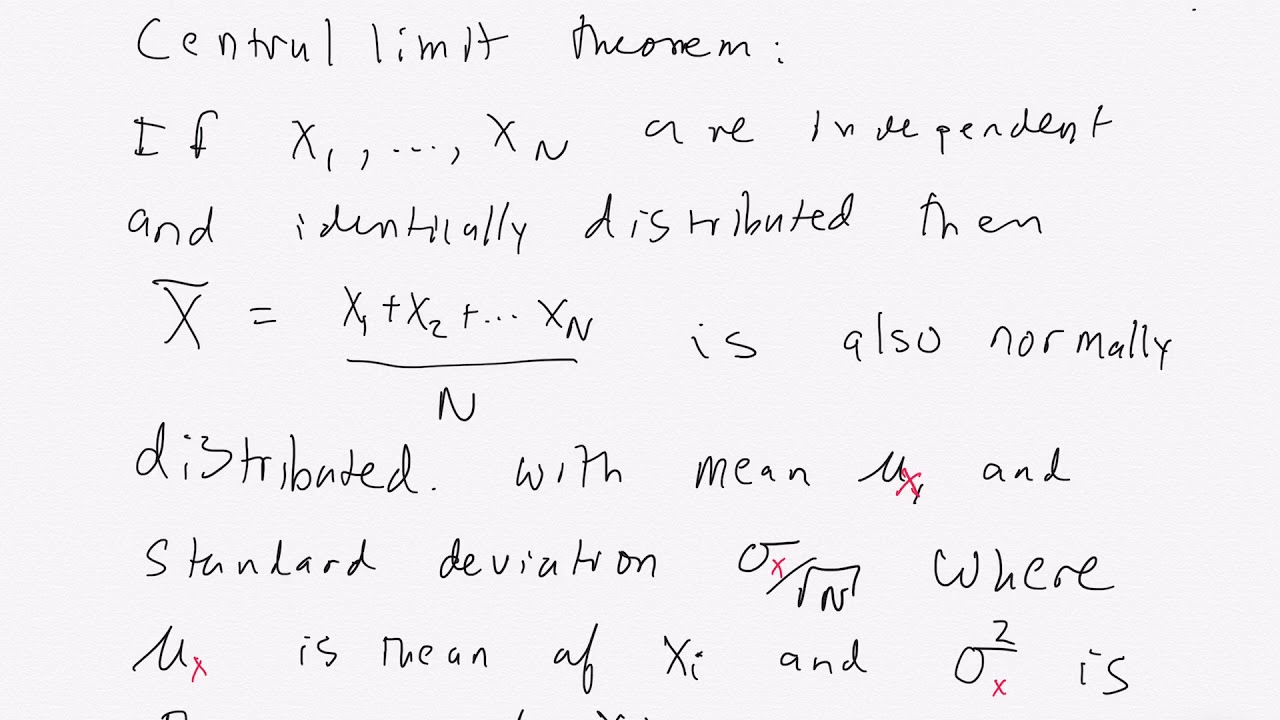 Central limit theorem:
If X₁, ..., X_N are independent
and identically distributed then
X̄ = (X₁+X₂+... X_N)/N is also normally
distributed. with mean μₓ, and
standard deviation σₓ/√N where
μₓ is mean of Xᵢ and σₓ² is